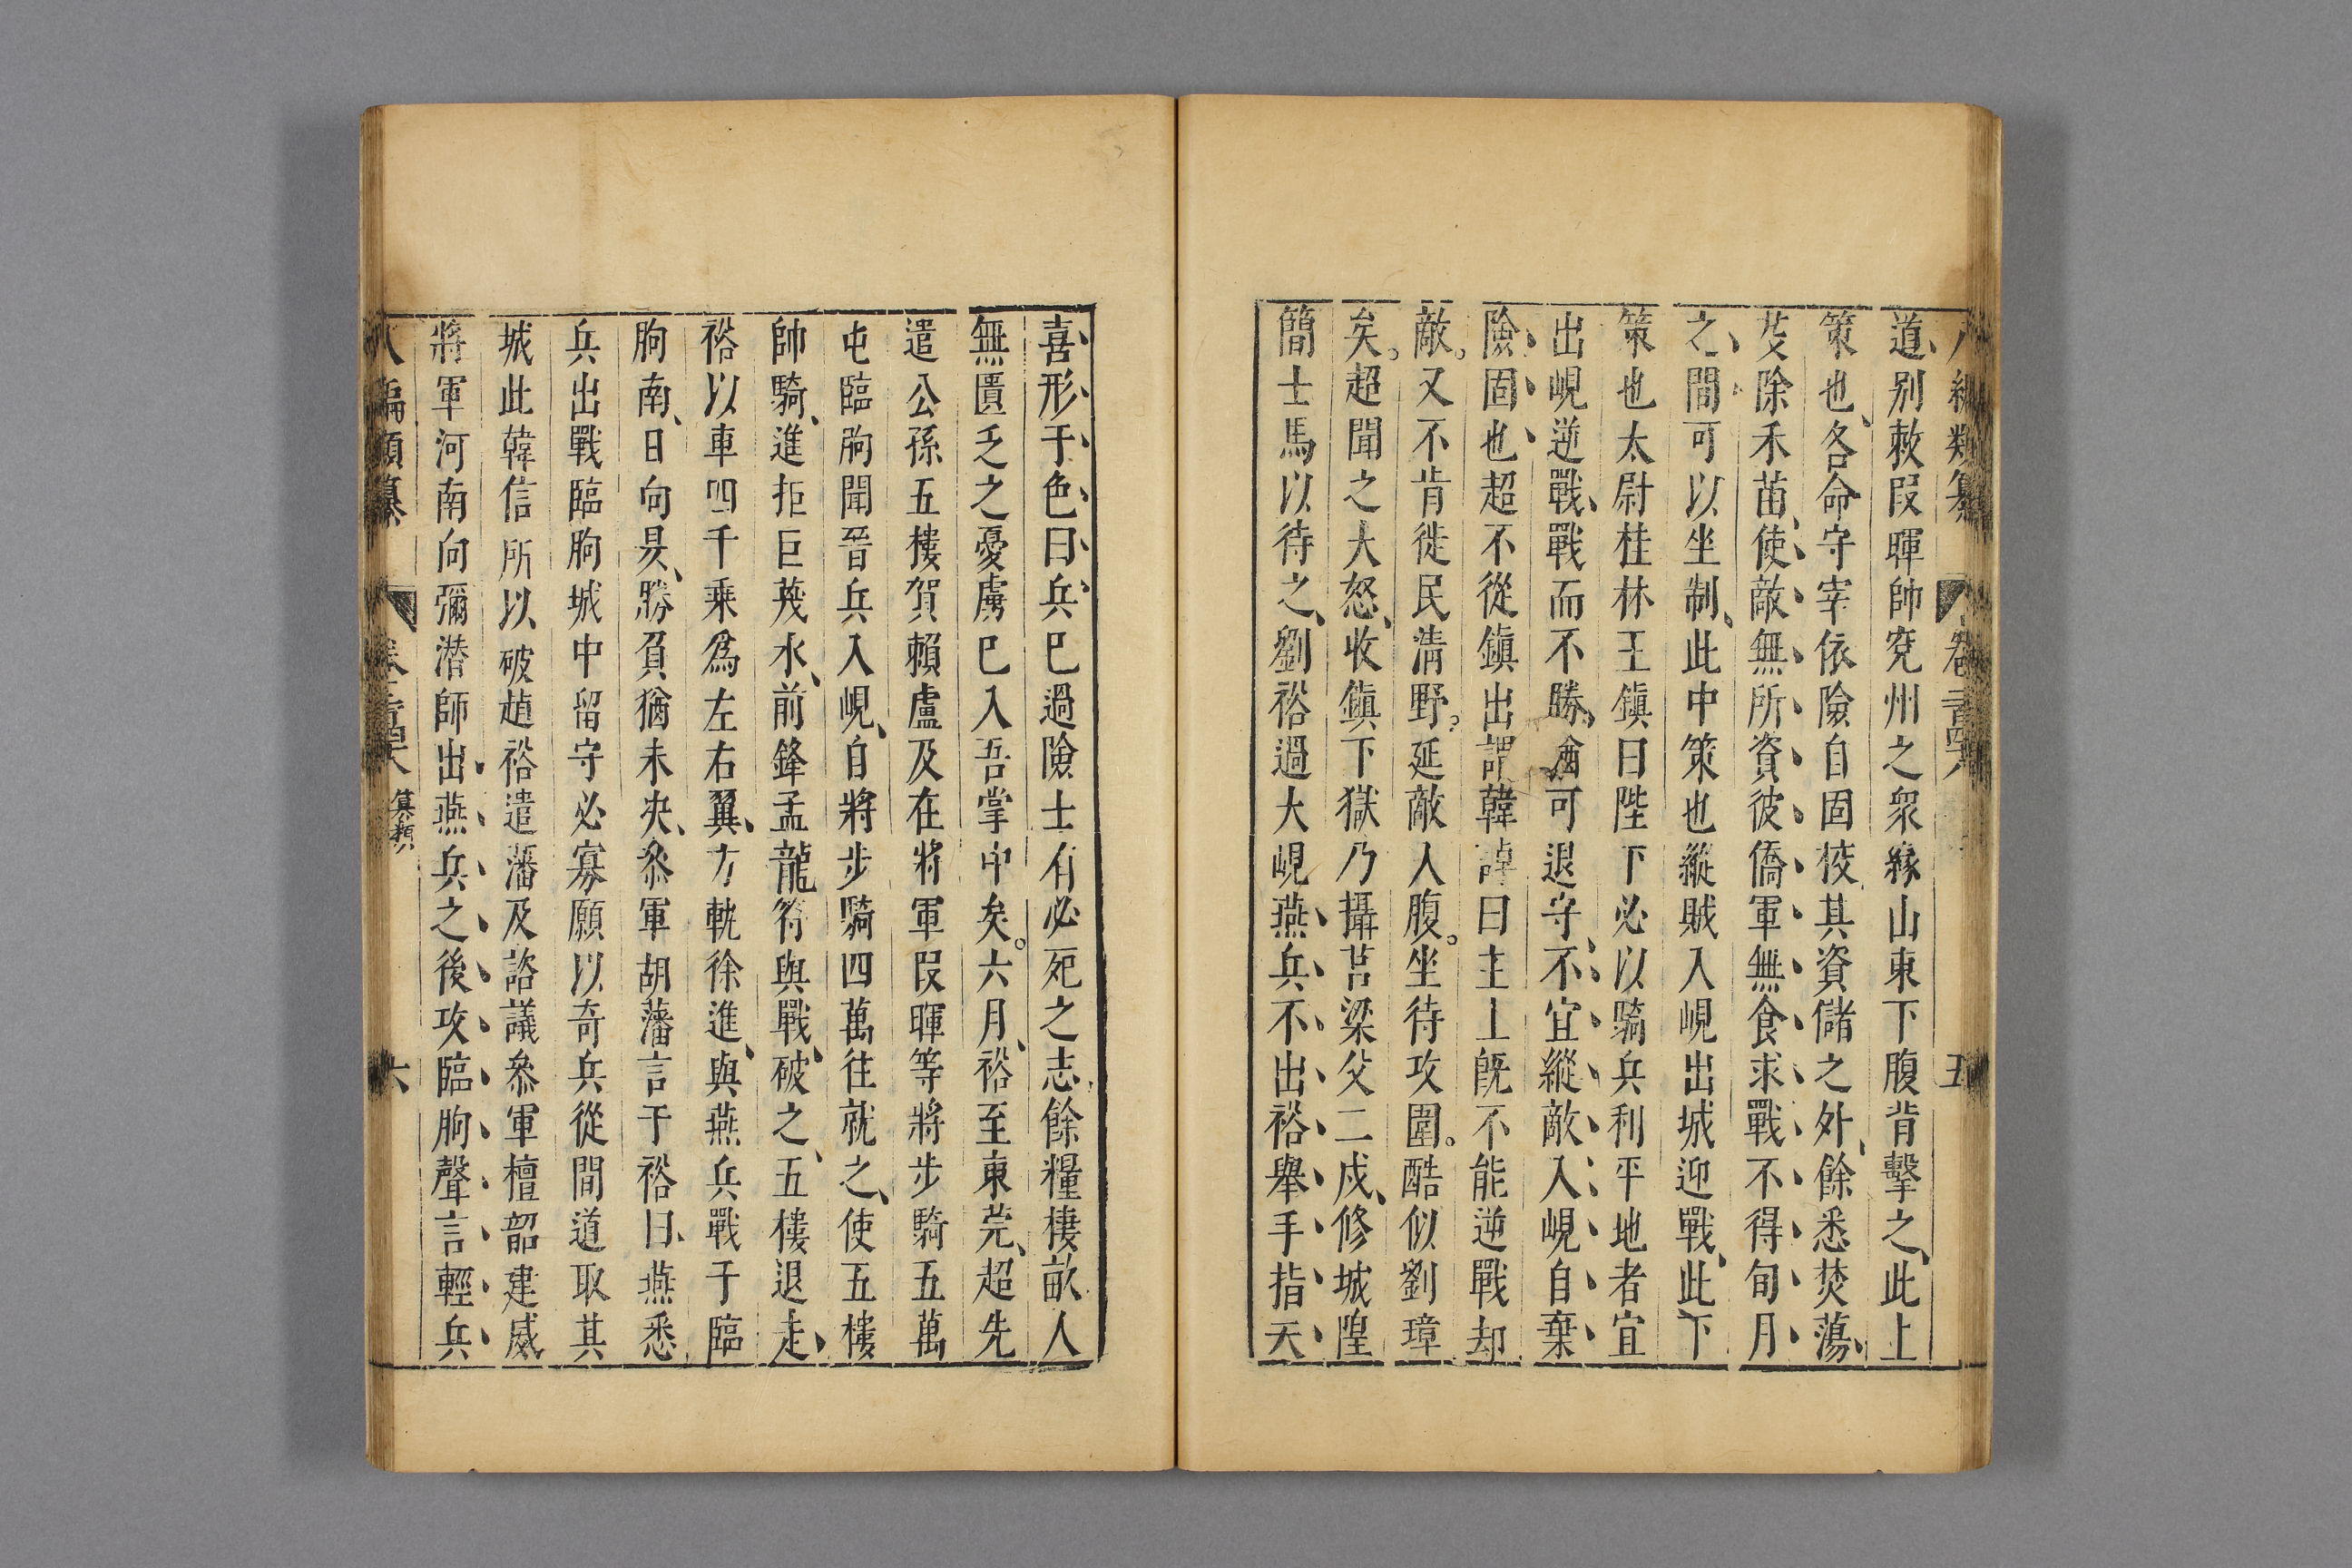 八編類纂 卷一百四六 五
道別敕段暉帥兗州之衆緣山東下腹背擊之此上
策也各命守宰依險自固校其資儲之外餘悉焚蕩
芟除禾苗使敵無所資彼僑軍無食求戰不得旬月
之間可以坐制此中策也縱賊入峴出城迎戰此下
策也太尉桂林王鎮曰陛下必以騎兵利平地者宜
出峴逆戰戰而不勝猶可退守不宜縱敵入峴自棄
險固也超不從鎮出謂韓𧨳曰主上旣不能逆戰却
敵又不肯徙民清野延敵人腹坐待攻圍酷似劉璋
矣超聞之大怒收鎮下獄乃攝莒梁父二戍修城隍
簡士馬以待之劉裕過大峴燕兵不出裕舉手指天
喜形于色曰兵已過險士有必死之志餘糧棲畝人
無匱乏之憂虜已入吾掌中矣六月裕至東莞超先
遣公孫五樓賀賴盧及在將軍段暉等將步騎五萬
屯臨朐聞晉兵入峴自將步騎四萬往就之使五樓
帥騎進拒巨蔑水前鋒孟龍符與戰破之五樓退走
裕以車四千乘爲左右翼方軌徐進與燕兵戰于臨
朐南日向昃勝負猶未決叅軍胡藩言于裕曰燕悉
兵出戰臨朐城中留守必寡願以奇兵從間道取其
城此韓信所以破趙裕遣藩及諮議叅軍檀韶建威
將軍河南向彌潛師出燕兵之後攻臨朐聲言輕兵
八編類纂 六